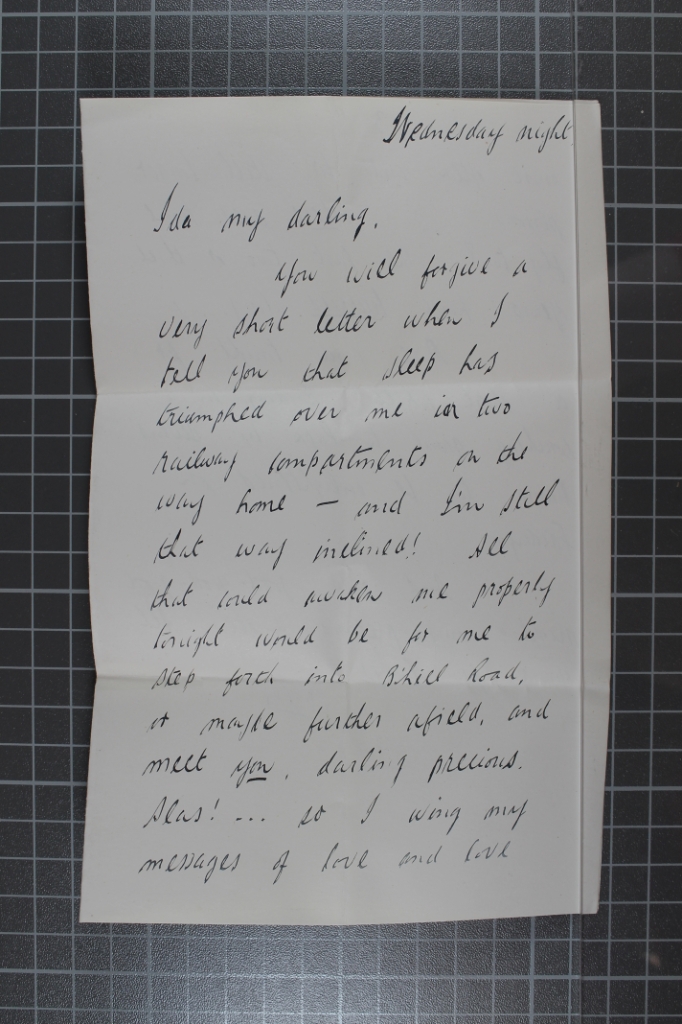 Wednesday night
Ida my darling,
You will forgive a
very short letter when I
tell you that sleep has
triumphed over me in two
railway compartments on the
way home — and I'm still
that way inclined! All
that could awaken me properly
tonight would be for me to
step forth into Road,
or maybe further afield, and
meet you, darling precious.
Alas! ... so I wing my
messages of love and love